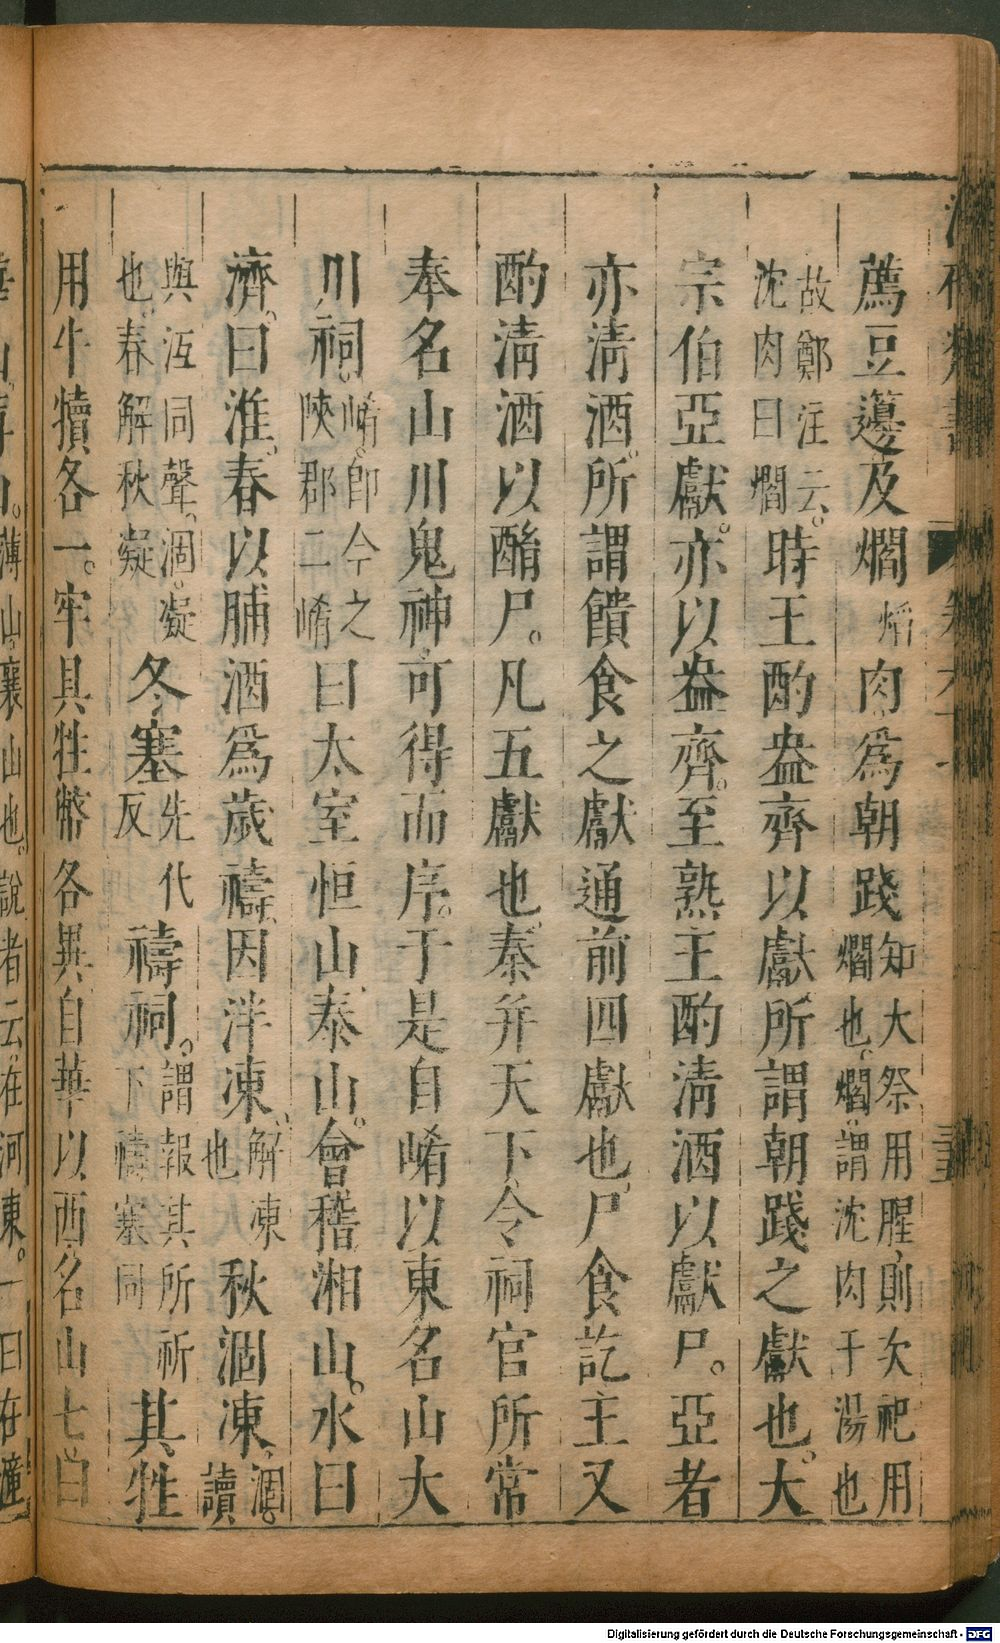 薦豆籩及爓爓肉為朝踐知大祭用腥則次祀用爓也爓謂沈肉于湯也
故鄭注云沈肉曰爓時王酌盎齊以獻所謂朝踐之獻也大
宗伯亞獻亦以盎齊至熟王酌清酒以獻尸亞者
亦清酒所謂饋食之獻通前四獻也尸食訖王又
酌清酒以酳尸凡五獻也秦并天下令祠官所常
奉名山川鬼神可得而序于是自崤以東名山大
川祠崤即今之陝郡二崤曰太室恒山泰山會稽湘山水曰
濟曰淮春以脯酒為歲禱因泮凍解凍也秋涸凍涸讀
與沍同聲涸凝也春解秋凝冬塞先代反禱祠謂報其所祈下禱塞同其牲
用牛犢各一牢具牲幣各異自華以西名山七曰
薄山襄山也說者云在河東一曰在潼
Digitalisierung gefördert durch die Deutsche Forschungsgemeinschaft - DFG